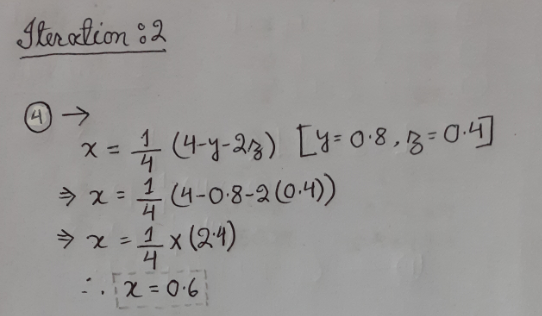 Iteration : 2
④ →
x = 1/4 (4-y-2z) [y= 0.8, z= 0.4]
⇒ x = 1/4 (4-0.8-2(0.4))
⇒ x = 1/4 × (2.4)
∴ x = 0.6